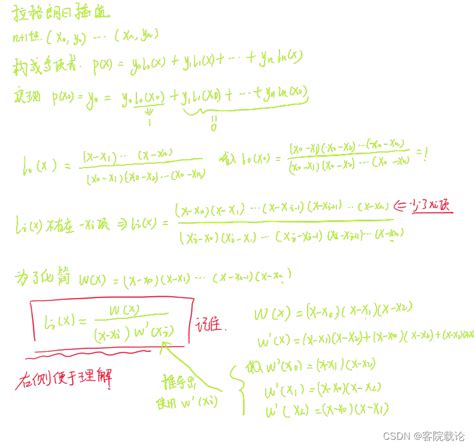 拉格朗日插值
n+1个点 (x₀, y₀) ⋯ (xₙ, yₙ)
构成多项式: p(x) = y₀l₀(x) + y₁l₁(x) + ⋯ + yₙln(x)
实现 p(x₀) = y₀ = y₀l₀(x₀) + y₁l₁(x₀) + ⋯ + yₙln(x₀)
1 0
l₀(x) = (x-x₁) ⋯ (x-xₙ) / (x₀-x₁)(x₀-x₂)⋯(x₀-xₙ) l₀(x₀) = (x₀-x₁)(x₀-x₂)⋯(x₀-xₙ) / (x₀-x₁)(x₀-x₂)⋯(x₀-xₙ) = 1
li(x)不存在-xi项 ⇒ li(x) = (x-x₀)(x-x₁) ⋯ (x-xi-1)(x-xi+1) ⋯ (x-xₙ) / (xi-x₀)(xi-x₁) ⋯ (xi-xi-1)(xi-xi+1) ⋯ (x-xₙ) ⇐ 少了xi项
为了化简 W(x) = (x-x₀)(x-x₁) ⋯ (x-xₙ₋₁)(x-xₙ)
li(x) = W(x) / (x-xi) W'(xi) 记住.
右侧便于理解
推导出
使用 W'(xi)
W(x) = (x-x₀)(x-x₁)(x-x₂)
W'(x) = (x-x₁)(x-x₂)+(x-x₀)(x-x₂)+(x-x₀)(x
代入 W'(x₀) = (x-x₁)(x-x₂)
W'(x₁) = (x-x₀)(x-x₂)
W'(x₂) = (x-x₀)(x-x₁)
CSDN @客院载论